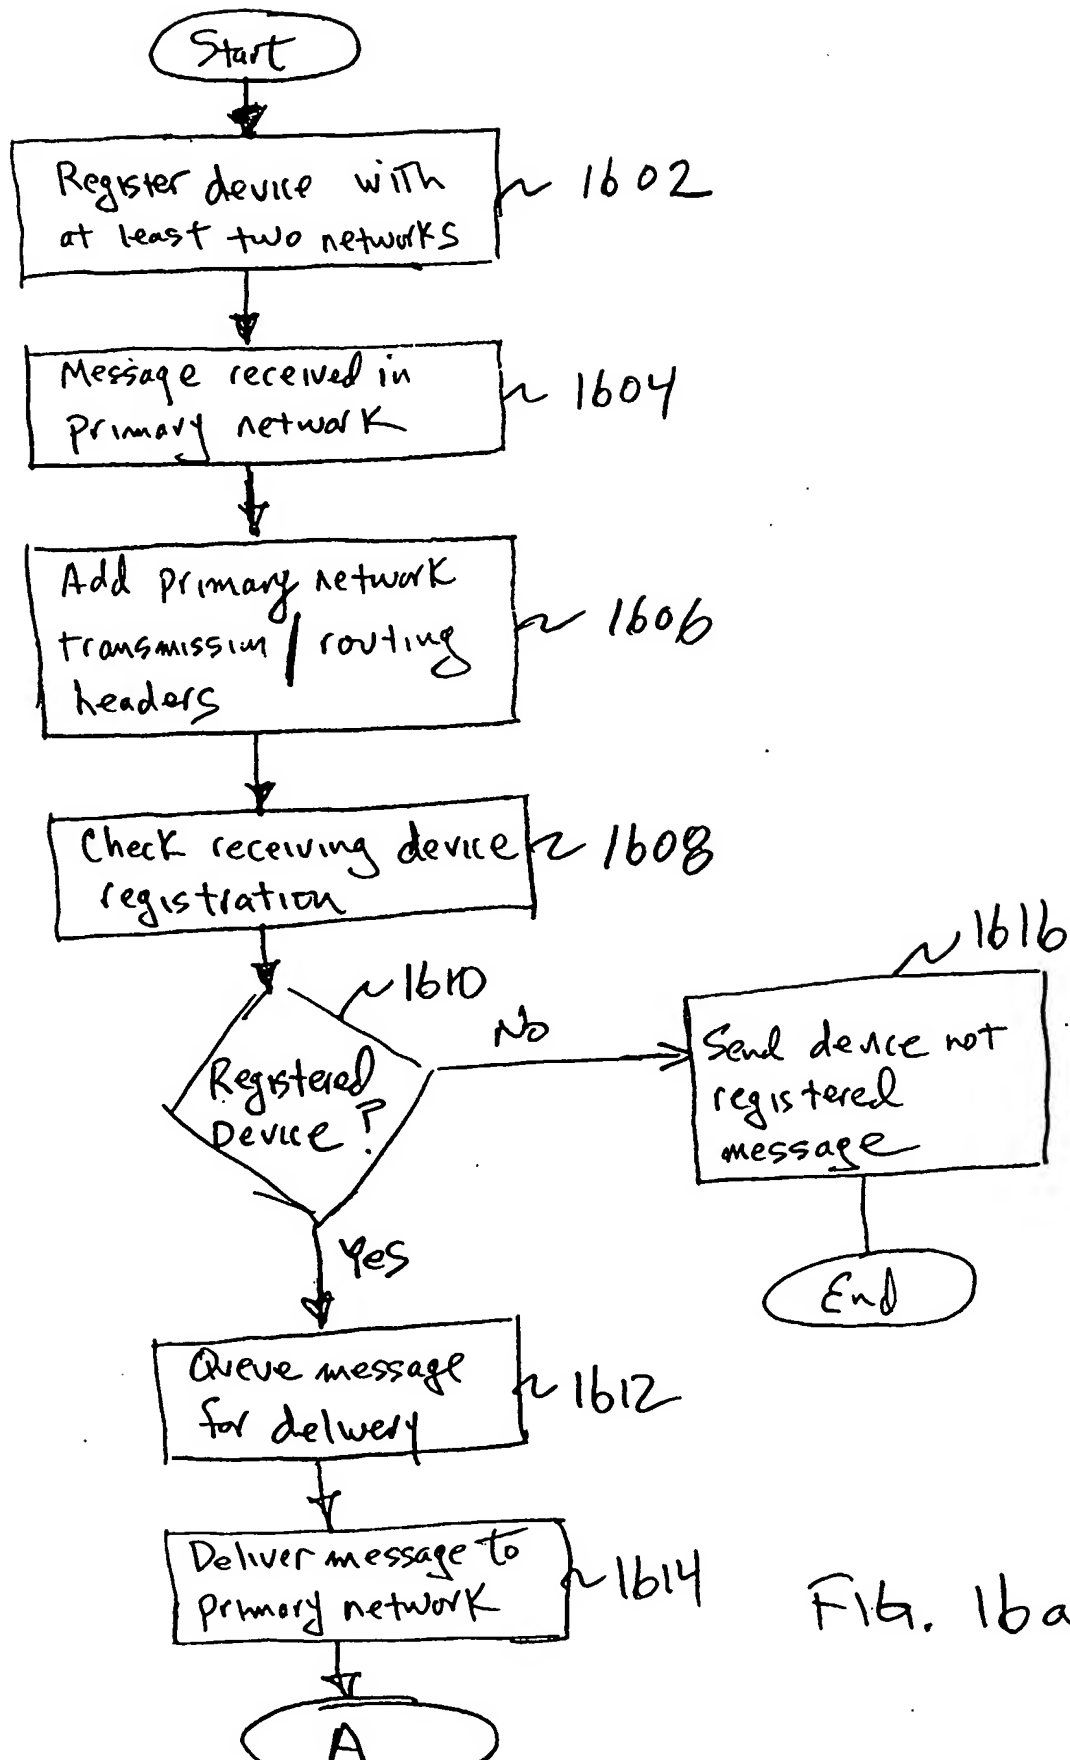 Start
Register device with
at least two networks
1602
Message received in
primary network
1604
Add primary network
transmission / routing
headers
1606
Check receiving device
registration
1608
1610
Registered
Device?
No
1616
Send device not
registered
message
End
Yes
Queue message
for delivery
1612
Deliver message to
primary network
1614
A
FIG. 16a